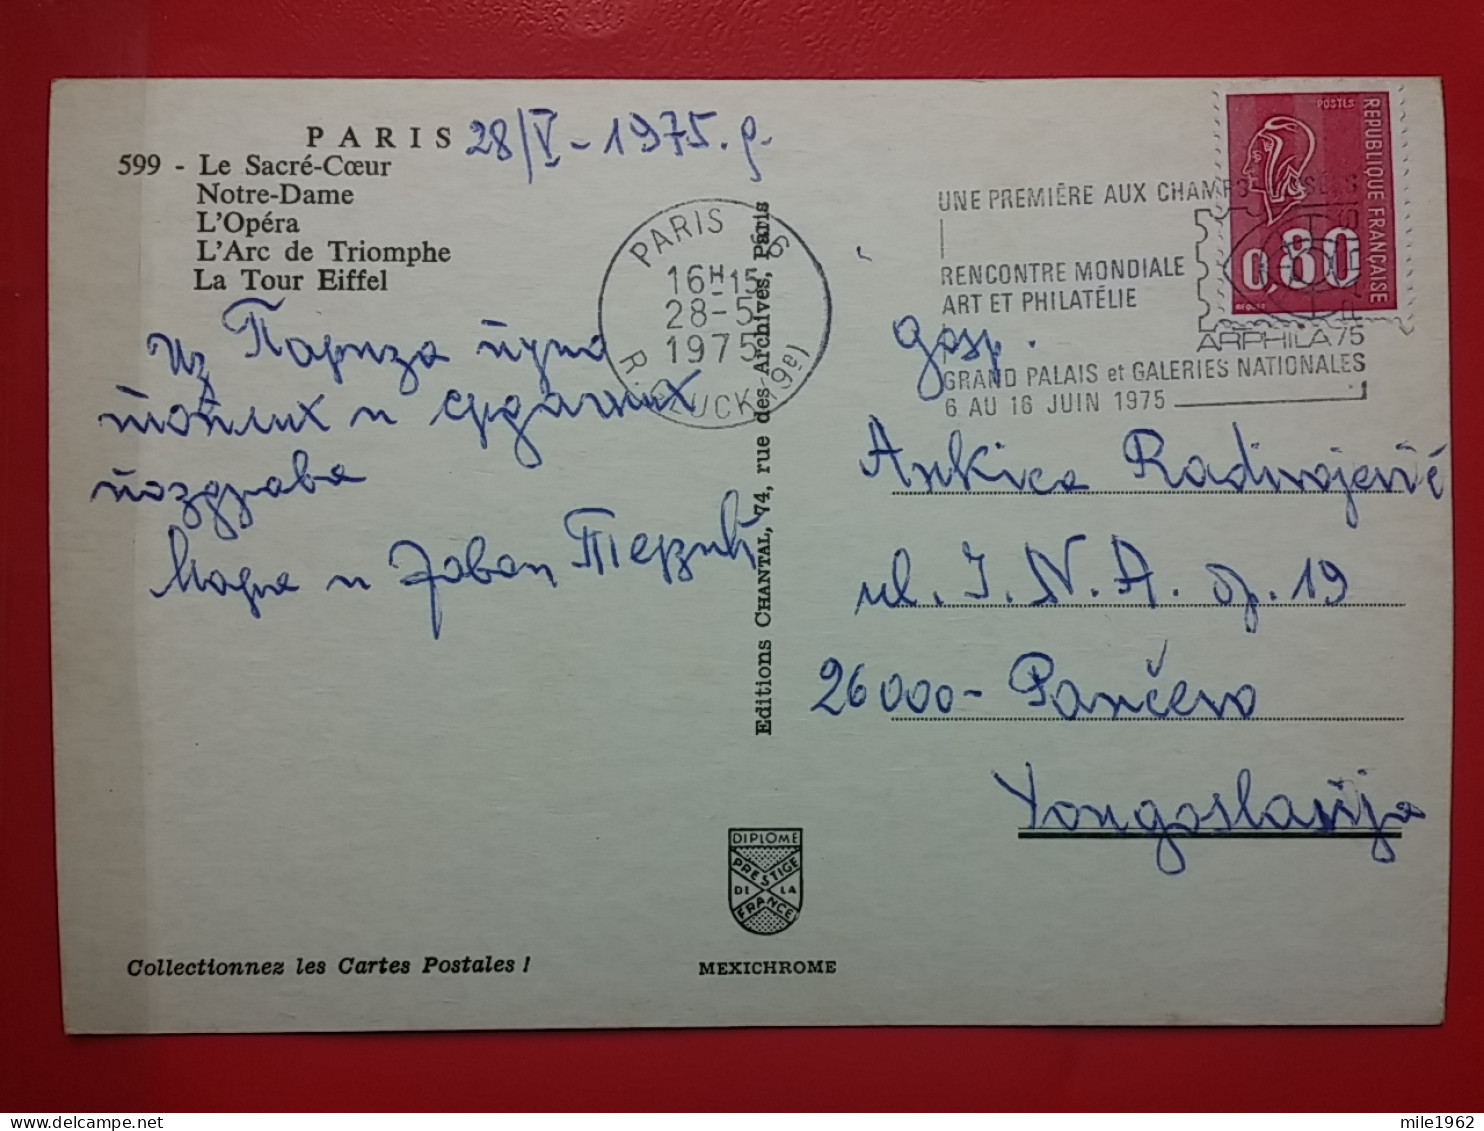 PARIS 28/V - 1975. g.
599 - Le Sacré-Cœur
Notre-Dame
L'Opéra
L'Arc de Triomphe
La Tour Eiffel
Из Париза пуно
топлих и срдачних
поздрава
Мара и Јован Терзић
Editions CHANTAL, 74, rue des Archives, Paris
PARIS 96
16H15
28-5
1975
R. GLUCK (9e)
UNE PREMIÈRE AUX CHAMPS ELYSÉES
RENCONTRE MONDIALE
ART ET PHILATÉLIE
ARPHILA 75
PARIS
GRAND PALAIS et GALERIES NATIONALES
6 AU 16 JUIN 1975
POSTES
REPUBLIQUE FRANÇAISE
0,80
gosp.
Ankica Radivojević
ul. J. N. A. br. 19
26000 - Pančevo
Yougoslavija
DIPLOME
PRESTIGE
DE LA
FRANCE
Collectionnez les Cartes Postales !
MEXICHROME
mile1962